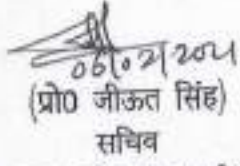 06/02/2021
(प्रो0 जीऊत सिंह)
सचिव